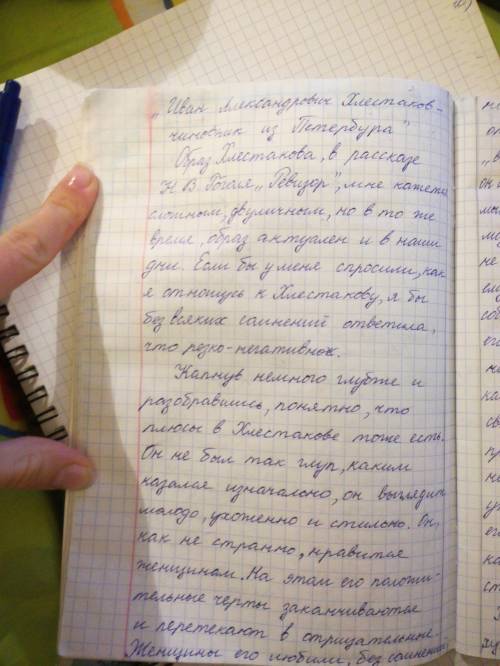 „Иван Александрович Хлестаков-
чиновник из Петербура"
Образ Хлестакова, в рассказе
Н. В. Гоголя „Ревизор", мне кажется
сложным, двуличным, но в то же
время, образ актуален и в наши
дни. Если бы у меня спросили, как
я отношусь к Хлестакову, я бы
без всяких сомнений ответила,
что резко-негативно.
Капнув немного глубже и
разобравшись, понятно, что
плюсы в Хлестакове тоже есть.
Он не был так глуп, каким
казался изначально, он выглядит
молодо, ухоженно и стильно. Он,
как не странно, нравится
женщинам. На этом его положи-
тельные черты заканчиваются
и перетекают в отрицательные.
Женщины его любили, без сомнений